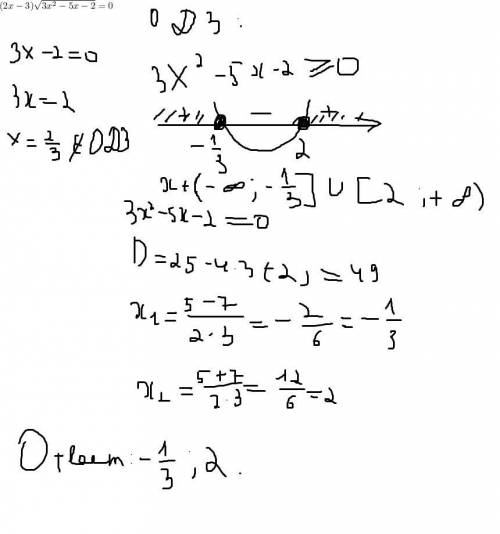 (2x − 3)√3x² − 5x − 2 = 0
ОДЗ:
3x − 2 = 0
3x = 2
x = 2/3 ∉ ОДЗ
3x² − 5x − 2 ⩾ 0
+ − +
−1/3 2
x + (−∞; −1/3] ∪ [2; +∞)
3x² − 5x − 2 = 0
D = 25 − 4·3(−2) = 49
x₁ = 5−7/2·3 = −2/6 = −1/3
x₂ = 5+7/2·3 = 12/6 = 2
Ответ: −1/3; 2.